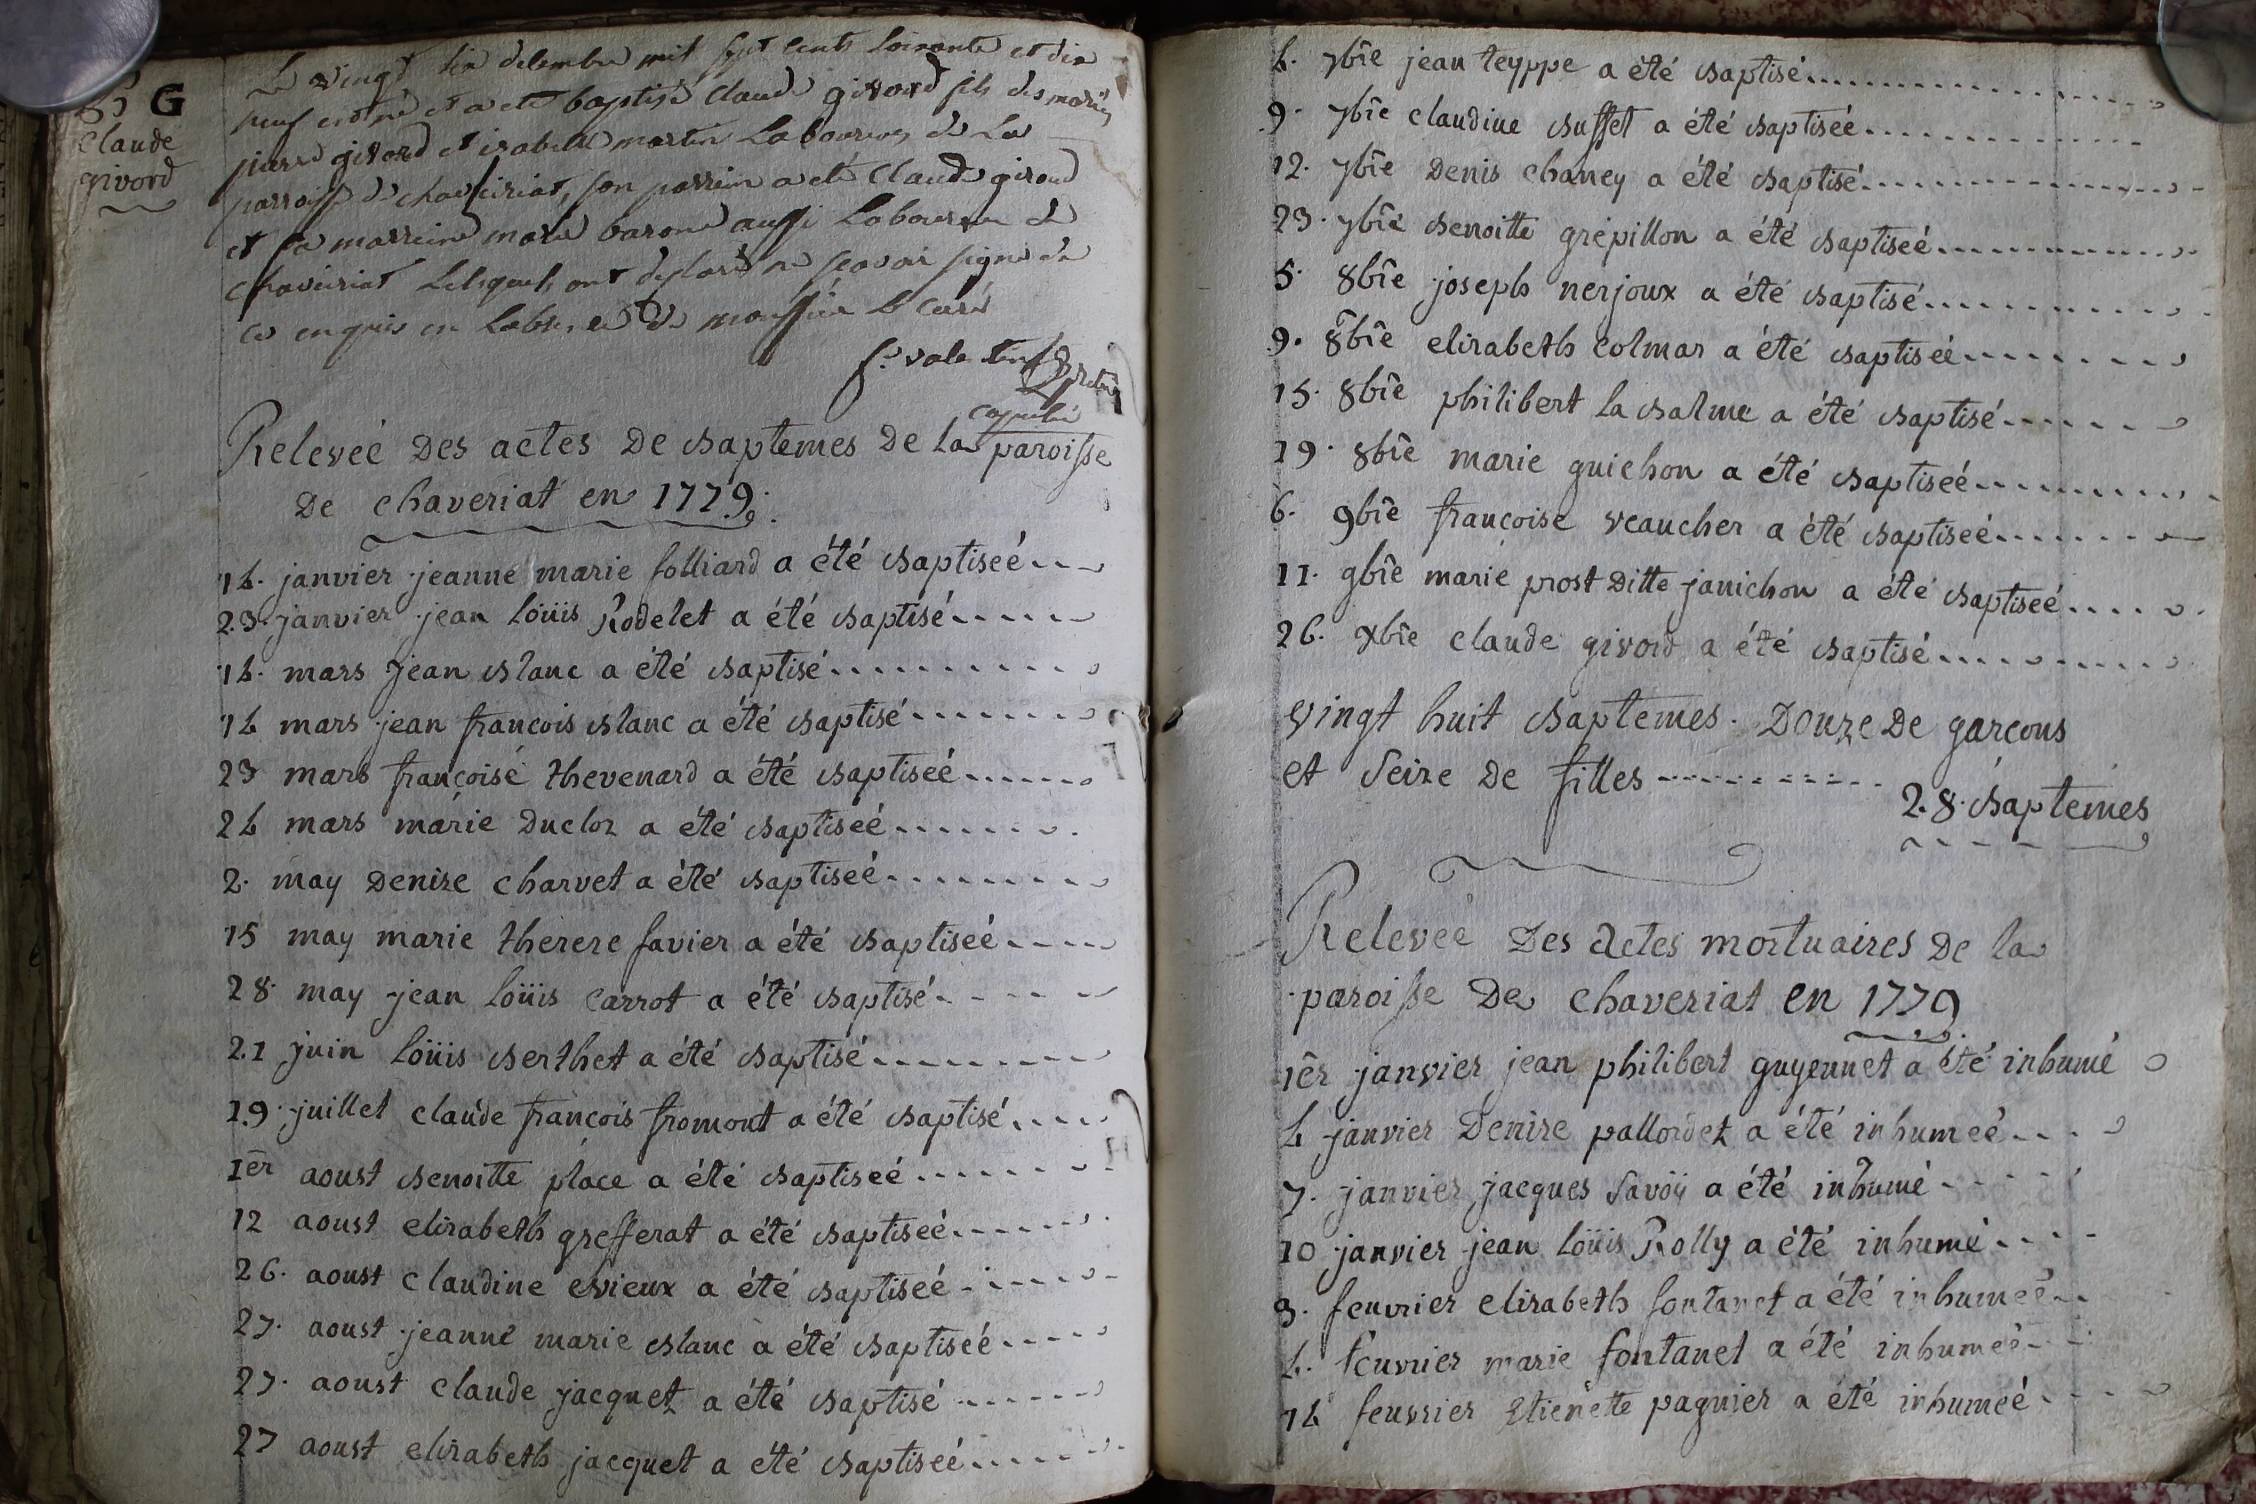 G
claude
givord
Le vingt six decembre mil sept cents soixante et dix
neuf est né et a eté baptisé claude givord fils des mariés
pierre givord et isabelle martin Laboureurs de La
parroisse de chaveiriat, son parrein a eté Claude giroud
et sa marreine marie barone aussi Laboureur de
chaveiriat Lesquels ont declaré ne scavoir signe de
ce enquis en Labsence de monsieur le curé
Releveé Des actes De baptemes De la paroisse
De chaveriat en 1779.
14. janvier jeanne marie folliard a été baptiseé
23 janvier jean loüis Rodelet a été baptisé
14. mars jean blanc a été baptisé
14 mars jean francois blanc a été baptisé
23 mars françoise thevenard a été baptiseé
24 mars marie Ducloz a été baptiseé
2. may Denize charvet a été baptiseé
15 may marie therese favier a été baptiseé
28 may jean loüis carrot a été baptisé
21 juin loüis berthet a été baptisé
19 juillet claude francois fromont a été baptisé
1er aoust benoitte place a été baptiseé
12 aoust elizabeth grefferat a été baptiseé
26. aoust claudine evieux a été baptiseé
27. aoust jeanne marie blanc a été baptiseé
27. aoust claude jacquet a été baptisé
27 aoust elizabeth jacquet a été baptiseé
4. 7bre jean teyppe a été baptisé
9. 7bre claudine buffet a été baptiseé
12. 7bre Denis chaney a été baptisé
23. 7bre benoitte grépillon a été baptiseé
5. 8bre joseph nerjoux a été baptisé
9. 8bre elizabeth colmar a été baptiseé
15. 8bre philibert la balme a été baptisé
19. 8bre marie guichon a été baptiseé
6. 9bre francoise veaucher a été baptiseé
11. 9bre marie prost Ditte janichon a été baptiseé
26. xbre claude givord a été baptisé
vingt huit baptemes. Douze De garcons
et seize De filles
28. baptemes
Releveé Des Actes mortuaires De la
paroisse De chaveriat en 1779
1er janvier jean philibert guyennet a été inhumé
4 janvier Denize pallordet a été inhumeé
7. janvier jacques Savoÿ a été inhumé
10 janvier jean loüis Rolly a été inhumé
3. feuvrier elizabeth fontanet a été inhumeé
4. feuvrier marie fontanet a été inhumeé
14 feuvrier Etienette pagnier a été inhumeé